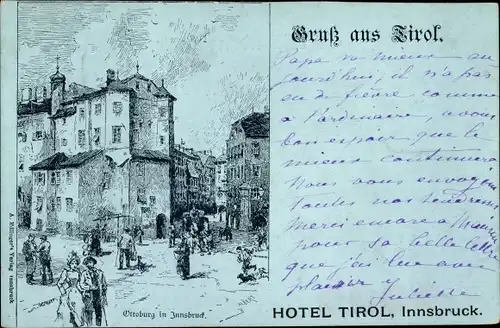 Gruß aus Tirol.
Papa va mieux au
jourd'hui, il n'a pas
eu de fièvre comme
à l'ordinaire, avons
bon espoir que le
mieux continuera
Nous vous envoyons
toutes nos tendresses
merci encore à
pour sa belle lettre
que j'ai lue avec
plaisir
Juliette
HOTEL TIROL, Innsbruck.
Ottoburg in Innsbruck.
A. Edlinger's Verlag Innsbruck